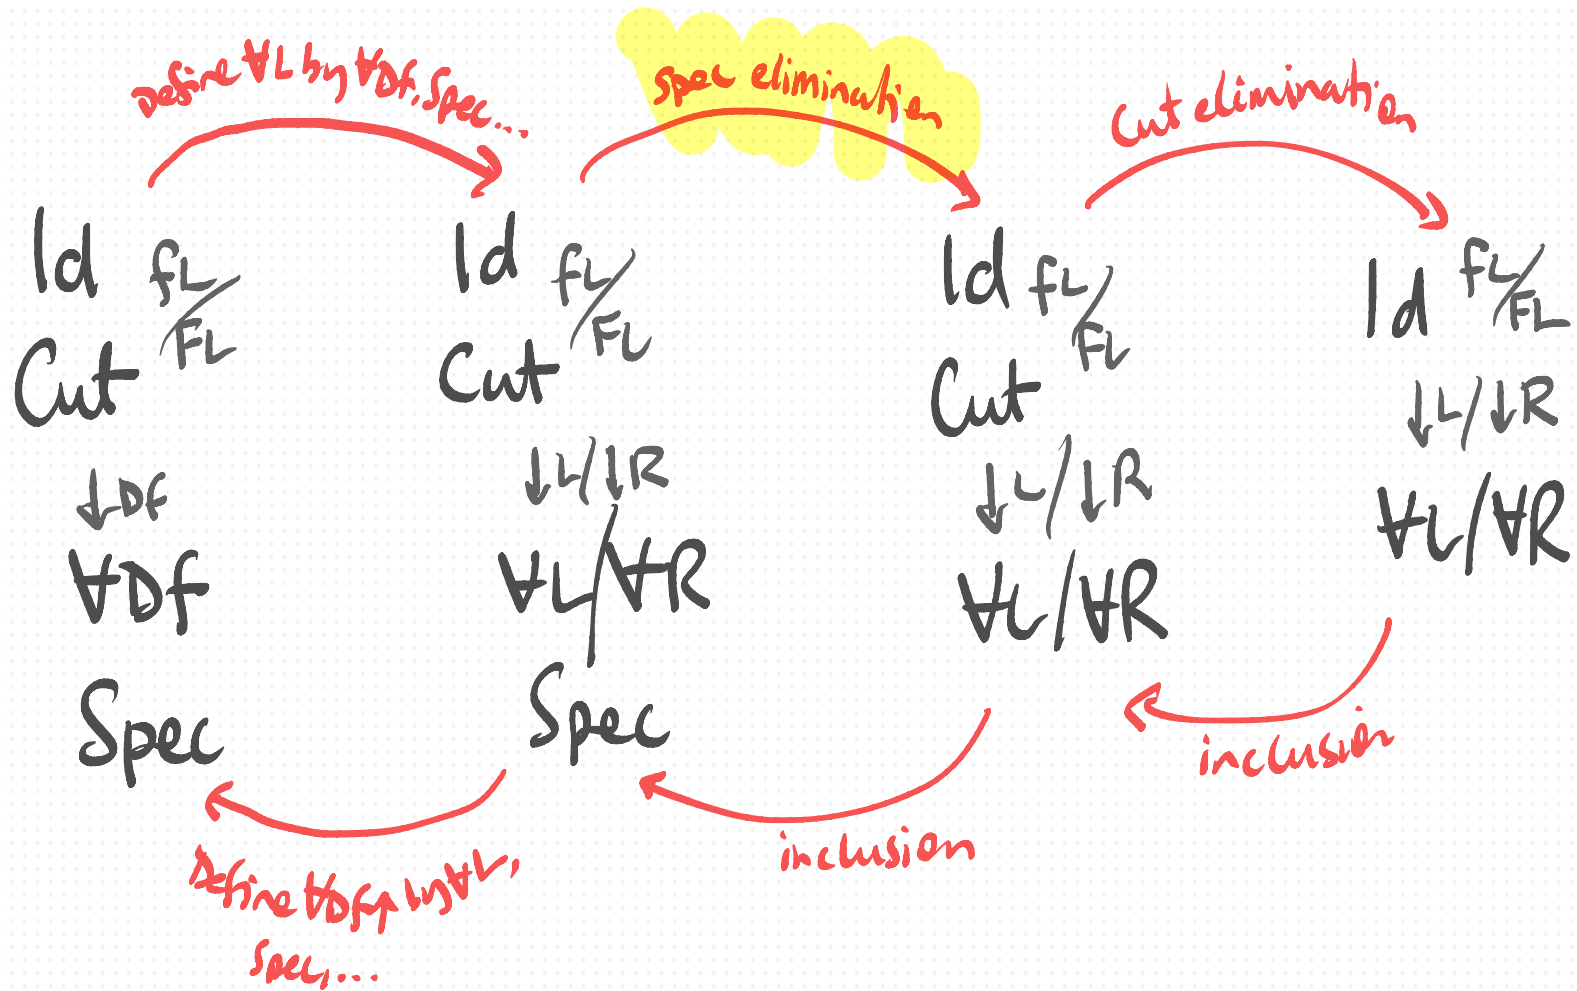 Define ∀L by ∀Df, Spec...
Spec elimination
Cut elimination
Id fL/FL
Cut
↓Df
∀Df
Spec
Id fL/FL
Cut
↓L/↓R
∀L/∀R
Spec
Id fL/FL
Cut
↓L/↓R
∀L/∀R
Id fL/FL
↓L/↓R
∀L/∀R
inclusion
inclusion
Define ∀Df↑ by ∀L,
Spec,...